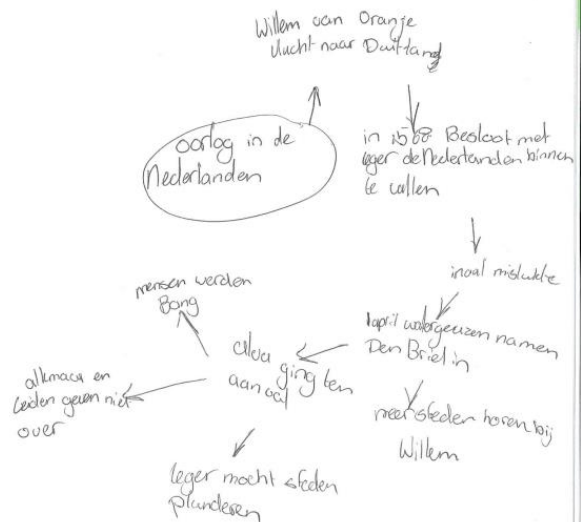 Willem van Oranje
vlucht naar Duitsland
oorlog in de
Nederlanden
in 1568 Besloot met
leger de Nederlanden binnen
te vallen
inval mislukte
1 april watergeuzen namen
Den Briel in
meer steden horen bij
Willem
alva ging ten
aanval
mensen werden
Bang
alkmaar en
Leiden geven niet
over
leger mocht steden
plunderen